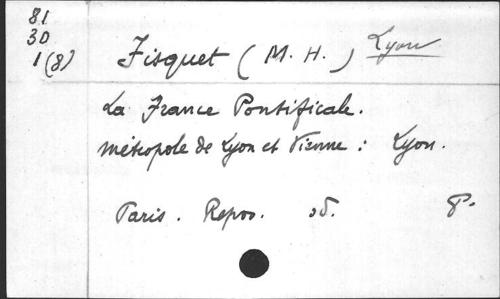 81
30
1(8)
Fisquet (M. H.) Lyon
La France Pontificale.
métropole de Lyon et Vienne : Lyon.
Paris. Repos. sd. 8°.